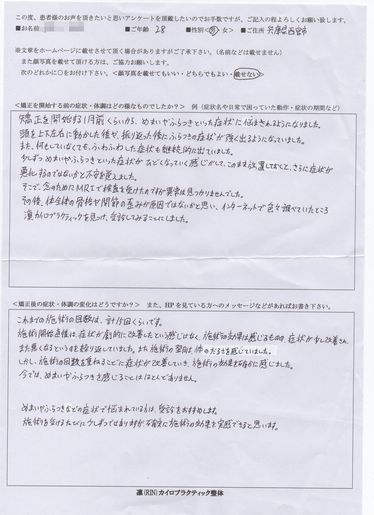 この度、患者様のお声を頂きたいと思いアンケートを頂戴したいのでお手数ですが、ご記入の程よろしくお願い致します。
■お名前 ■ご年齢 28 ■性別<男・女> ■ご住所 兵庫県西宮市
※文章をホームページに載せさせて頂く場合がありますがご了承下さい。(名前などは載せません)
また顔写真を載せて頂ける方は、ご協力お願いします。
次のどれかに○をお付け下さい。<顔写真を載せてもいい・どちらでもよい・載せない>
<矯正を開始する前の症状・体調はどの様なものでしたか?> 例(症状名や日常で困っていた動作・症状の期間など)
矯正を開始する1月前くらいから、めまいやふらつきといった症状に悩まされるようになりました。
頭を上下左右に動かした後や、振り返った後にふらつきの症状が強く出るようになっていました。
また、何もしていなくても、ふわふわした症状も継続的に出ていました。
少しずつめまいやふらつきといった症状がひどくなっていく感じがして、このまま放置しておくと、さらに症状が
悪化するのではないかと不安を覚えました。
そこで、念のためにMRIで検査を受けたのですが異常は見つかりませんでした。
その後、体全体の骨格や関節の歪みが原因ではないかと思い、インターネットで色々調べていたところ
凛カイロプラクティックを見つけ、受診してみることにしました。
<矯正後の症状・体調の変化はどうですか?> また、HPを見ている方へのメッセージなどがあればお書き下さい。
これまでの施術の回数は、計15回くらいです。
施術開始直後は、症状が劇的に改善したという感じはなく、施術の効果は感じるものの、症状が少し改善され、
また悪くなるというのを繰り返していました。また施術の翌日は体のだるさを感じていました。
しかし、施術の回数を重ねるごとに症状が改善していき、施術の効果を確かに感じました。
今では、めまいやふらつきを感じることはほとんどありません。
めまいやふらつきなどの症状で悩まれている方は、受診をおすすめします。
施術を受けるたびに少しずつではありますが、確実に施術の効果を実感できると思います。
凛(RIN)カイロプラクティック整体